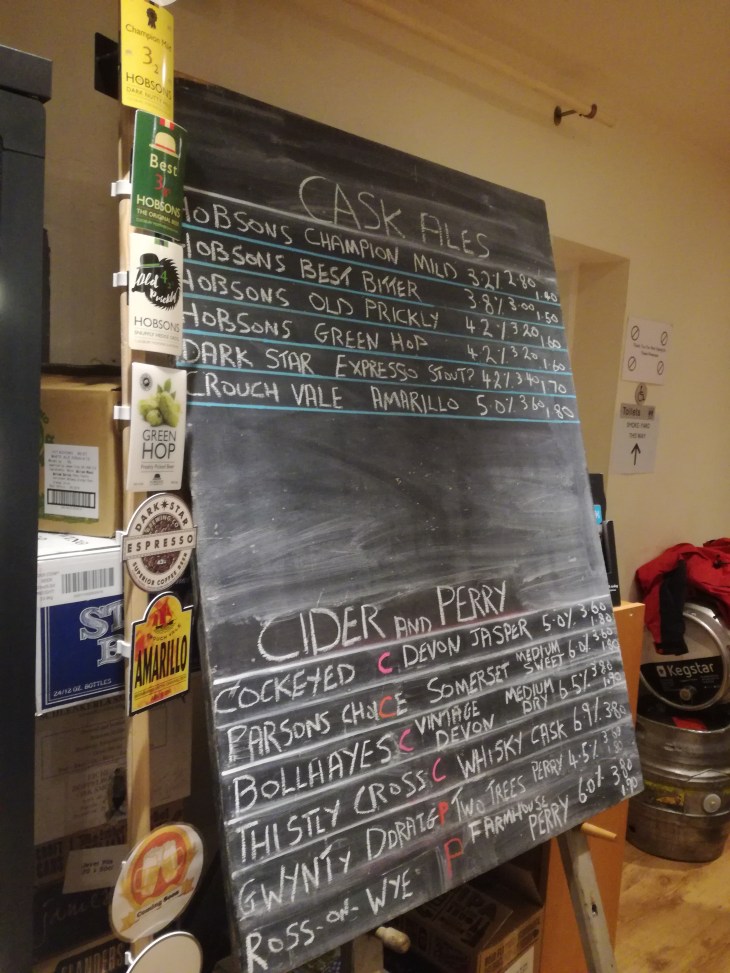 Champion Mild
3.2
HOBSONS
Best
3.8
HOBSONS
THE ORIGINAL
Old
4.2
Prickly
HOBSONS
GREEN
HOP
DARK STAR
ESPRESSO
SUPERIOR COFFEE BEER
AMARILLO
Coming Soon
CASK ALES
HOBSONS CHAMPION MILD 3.2% 2.80 1.40
HOBSONS BEST BITTER 3.8% 3.00 1.50
HOBSONS OLD PRICKLY 4.2% 3.20 1.60
HOBSONS GREEN HOP 4.2% 3.20 1.60
DARK STAR EXPRESSO STOUT? 4.2% 3.40 1.70
CROUCH VALE AMARILLO 5.0% 3.60 1.80
CIDER AND PERRY
COCKEYED C DEVON JASPER 5.0% 3.60 1.80
PARSONS CHOICE SOMERSET MEDIUM SWEET 6.0% 3.60 1.80
BOLLHAYES C VINTAGE DEVON MEDIUM DRY 6.5% 3.80 1.90
THISTLY CROSS C WHISKY CASK 6.9% 3.80
GWYNTY DDRAIG P TWO TREES PERRY 4.5% 1.80
ROSS-ON-WYE P FARMHOUSE PERRY 6.0% 3.80 1.90
24/12 OZ. BOTTLES
Toilets
THIS WAY
Kegstar